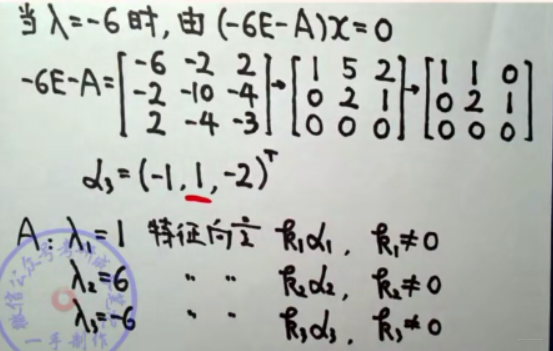 当 λ=-6 时, 由 (-6E-A)x=0
-6E-A=[-6 -2 2; -2 -10 -4; 2 -4 -3]→[1 5 2; 0 2 1; 0 0 0]→[1 1 0; 0 2 1; 0 0 0]
α₃=(-1, 1, -2)ᵀ
A: λ₁=1 特征向量 k₁α₁, k₁≠0
λ₂=6 〃 〃 k₂α₂, k₂≠0
λ₃=-6 〃 〃 k₃α₃, k₃≠0
一手制作